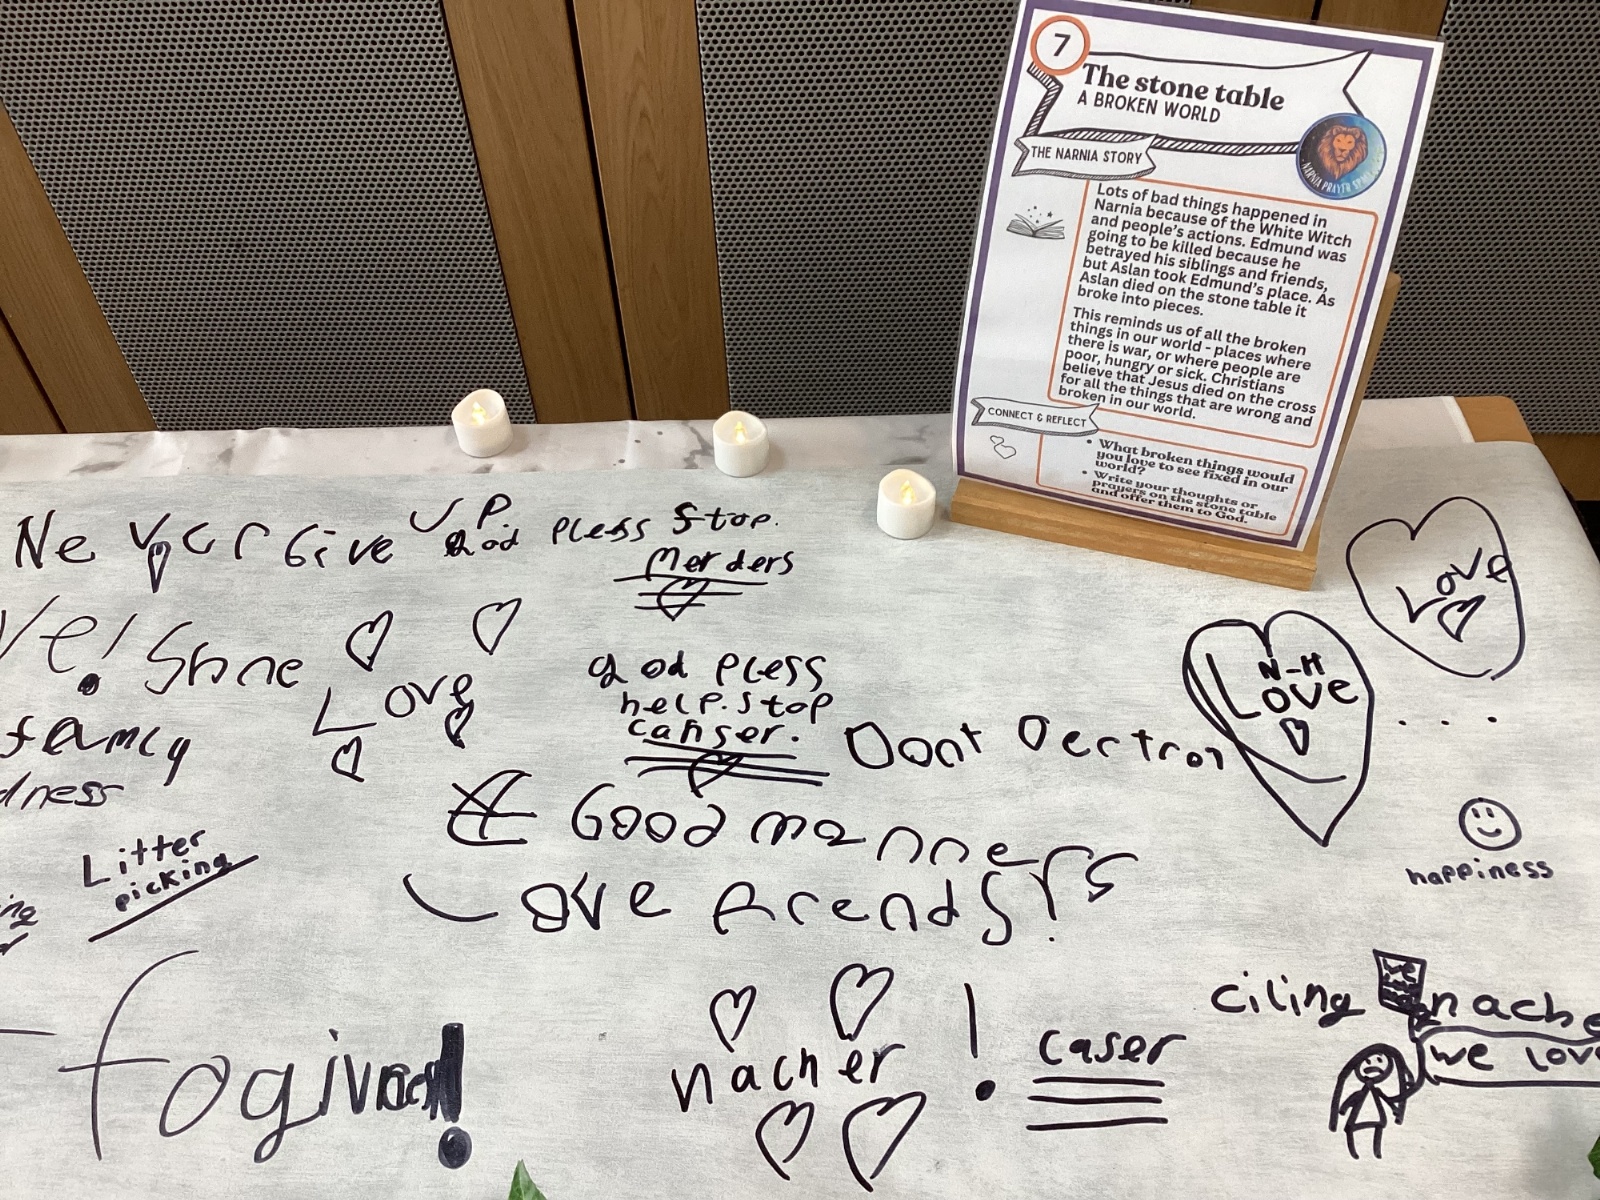 7
The stone table
A BROKEN WORLD
THE NARNIA STORY
NARNIA PRAYER
Lots of bad things happened in
Narnia because of the White Witch
and people's actions. Edmund was
going to be killed because he
betrayed his siblings and friends,
but Aslan took Edmund's place. As
Aslan died on the stone table it
broke into pieces.
This reminds us of all the broken
things in our world - places where
there is war, or where people are
poor, hungry or sick. Christians
believe that Jesus died on the cross
for all the things that are wrong and
broken in our world.
CONNECT & REFLECT
• What broken things would
you love to see fixed in our
world?
• Write your thoughts or
prayers on the stone table
and offer them to God.
Ne Give UP.
god pless stop.
merders
Love
VE! Shne
Love
god pless
help. stop
canser.
N-H
Love
famly
dness
Dont
Good manners
Love friends!
Litter
picking
happiness
fogivness!
nacher !
caser
ciling nache
we love